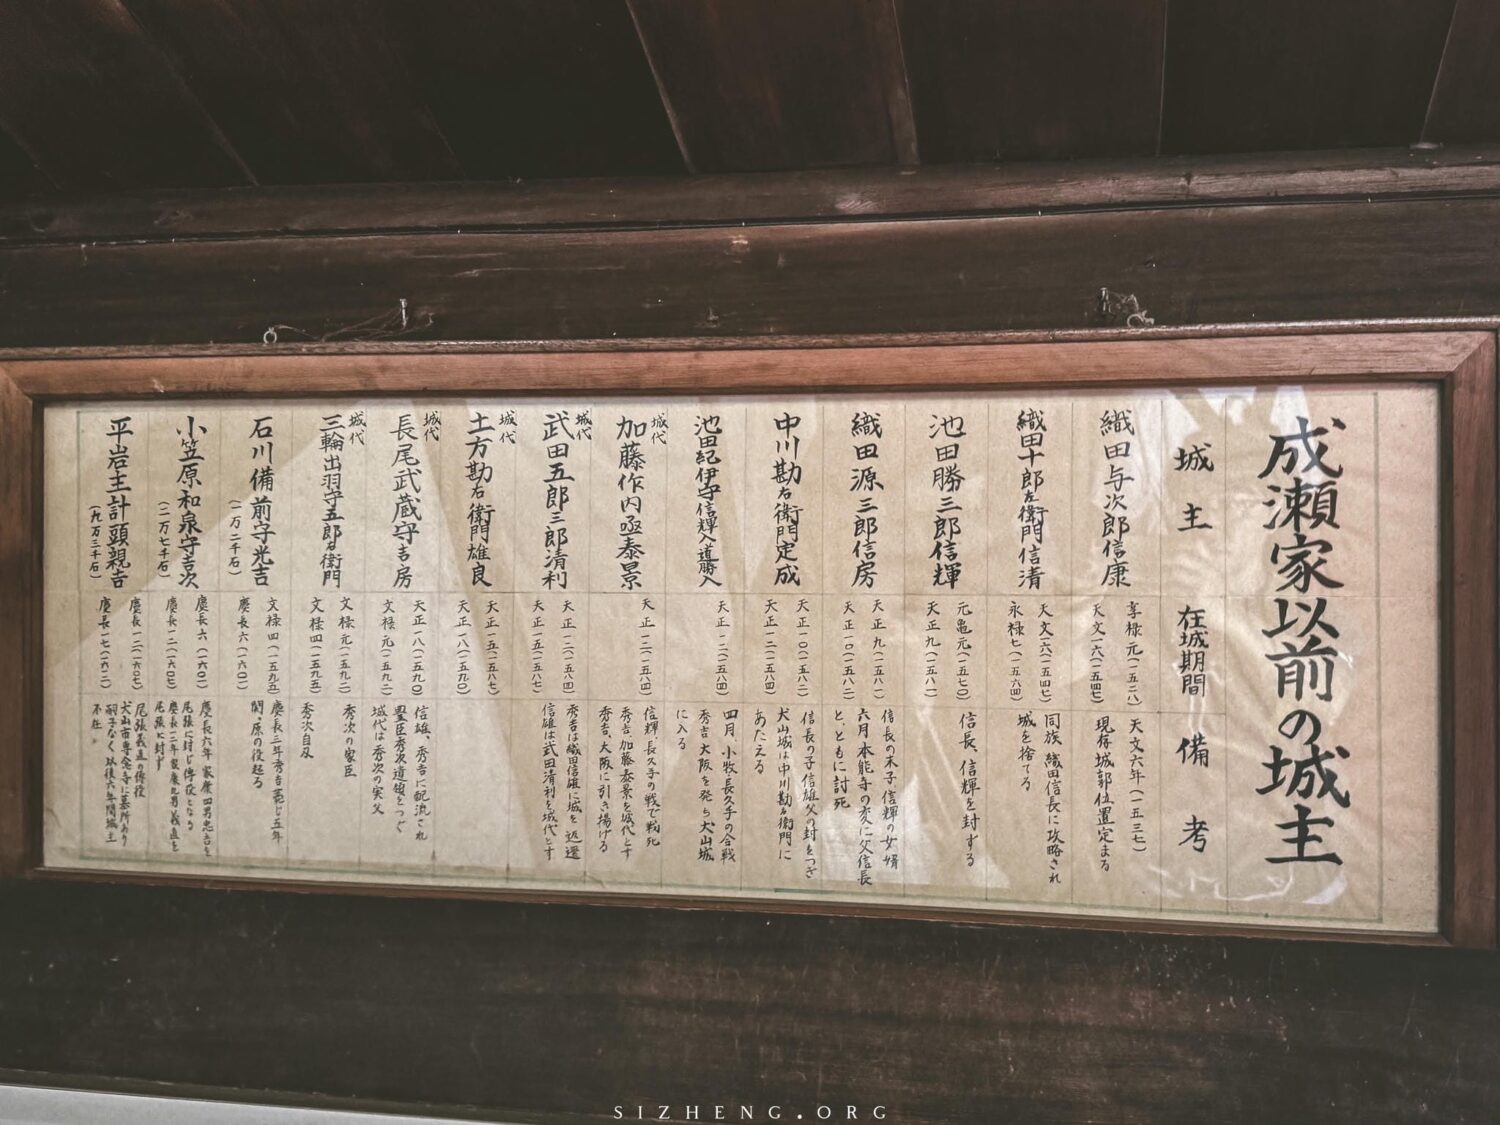 成瀬家以前の城主
城主
在城期間
備考
織田与次郎信康
享禄元(一五二八)
天文一六(一五四七)
天文六年(一五三七)
現存城郭位置定まる
織田十郎左衛門信清
天文一六(一五四七)
永禄七(一五六四)
同族 織田信長に攻略され
城を捨てる
池田勝三郎信輝
元亀元(一五七〇)
天正九(一五八一)
信長、信輝を封ずる
織田源三郎信房
天正九(一五八一)
天正一〇(一五八二)
信長の末子 信輝の女婿
六月本能寺の変に父信長
と、ともに討死
中川勘右衛門定成
天正一〇(一五八二)
天正一二(一五八四)
信長の子信雄父の封をつぎ
犬山城は中川勘右衛門に
あたえる
池田紀伊守信輝入道勝入
天正一二(一五八四)
四月、小牧長久手の合戦
秀吉、大阪を発ち犬山城
に入る
城代
加藤作内亟泰景
天正一二(一五八四)
信輝、長久手の戦で戦死
秀吉、加藤泰景を城代とす
秀吉、大阪に引き揚げる
城代
武田五郎三郎清利
天正一二(一五八四)
天正一五(一五八七)
秀吉は織田信雄に城を返還
信雄は武田清利を城代とす
城代
土方勘右衛門雄良
天正一五(一五八七)
天正一八(一五九〇)
城代
長尾武蔵守吉房
天正一八(一五九〇)
文禄元(一五九二)
信雄、秀吉に配流され
豊臣秀次遺領をつぐ
城代は秀次の実父
城代
三輪出羽守五郎右衛門
文禄元(一五九二)
文禄四(一五九五)
秀次の家臣
秀次自反
石川備前守光吉
(一万二千石)
文禄四(一五九五)
慶長六(一六〇一)
慶長三年秀吉薨じ五年
関ヶ原の役起る
小笠原和泉守吉次
(二万七千石)
慶長六(一六〇一)
慶長一二(一六〇七)
慶長六年 家康四男忠吉を
尾張に封じ傅役となる
慶長十二年家康九男義直を
尾張に封ず
平岩主計頭親吉
(九万三千石)
慶長一二(一六〇七)
慶長一七(一六一二)
尾張義直の傅役
犬山市専念寺に墓所あり
嗣子なく以後六年間城主
不在。
SIZHENG.ORG